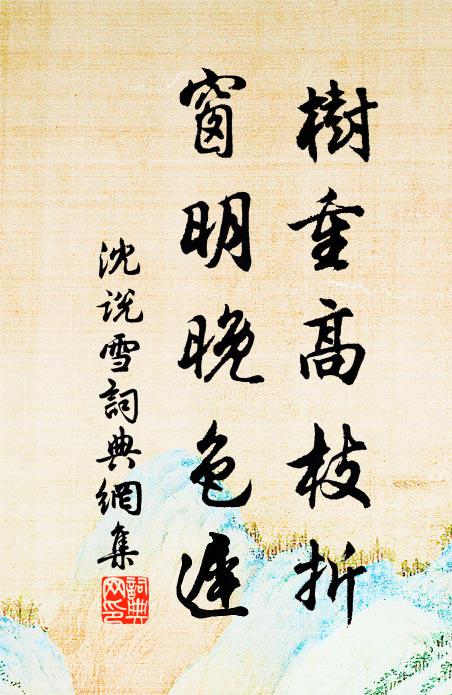 樹重高枝折
窗明晚色遲
沈说雪詞典網集
詞典
网印